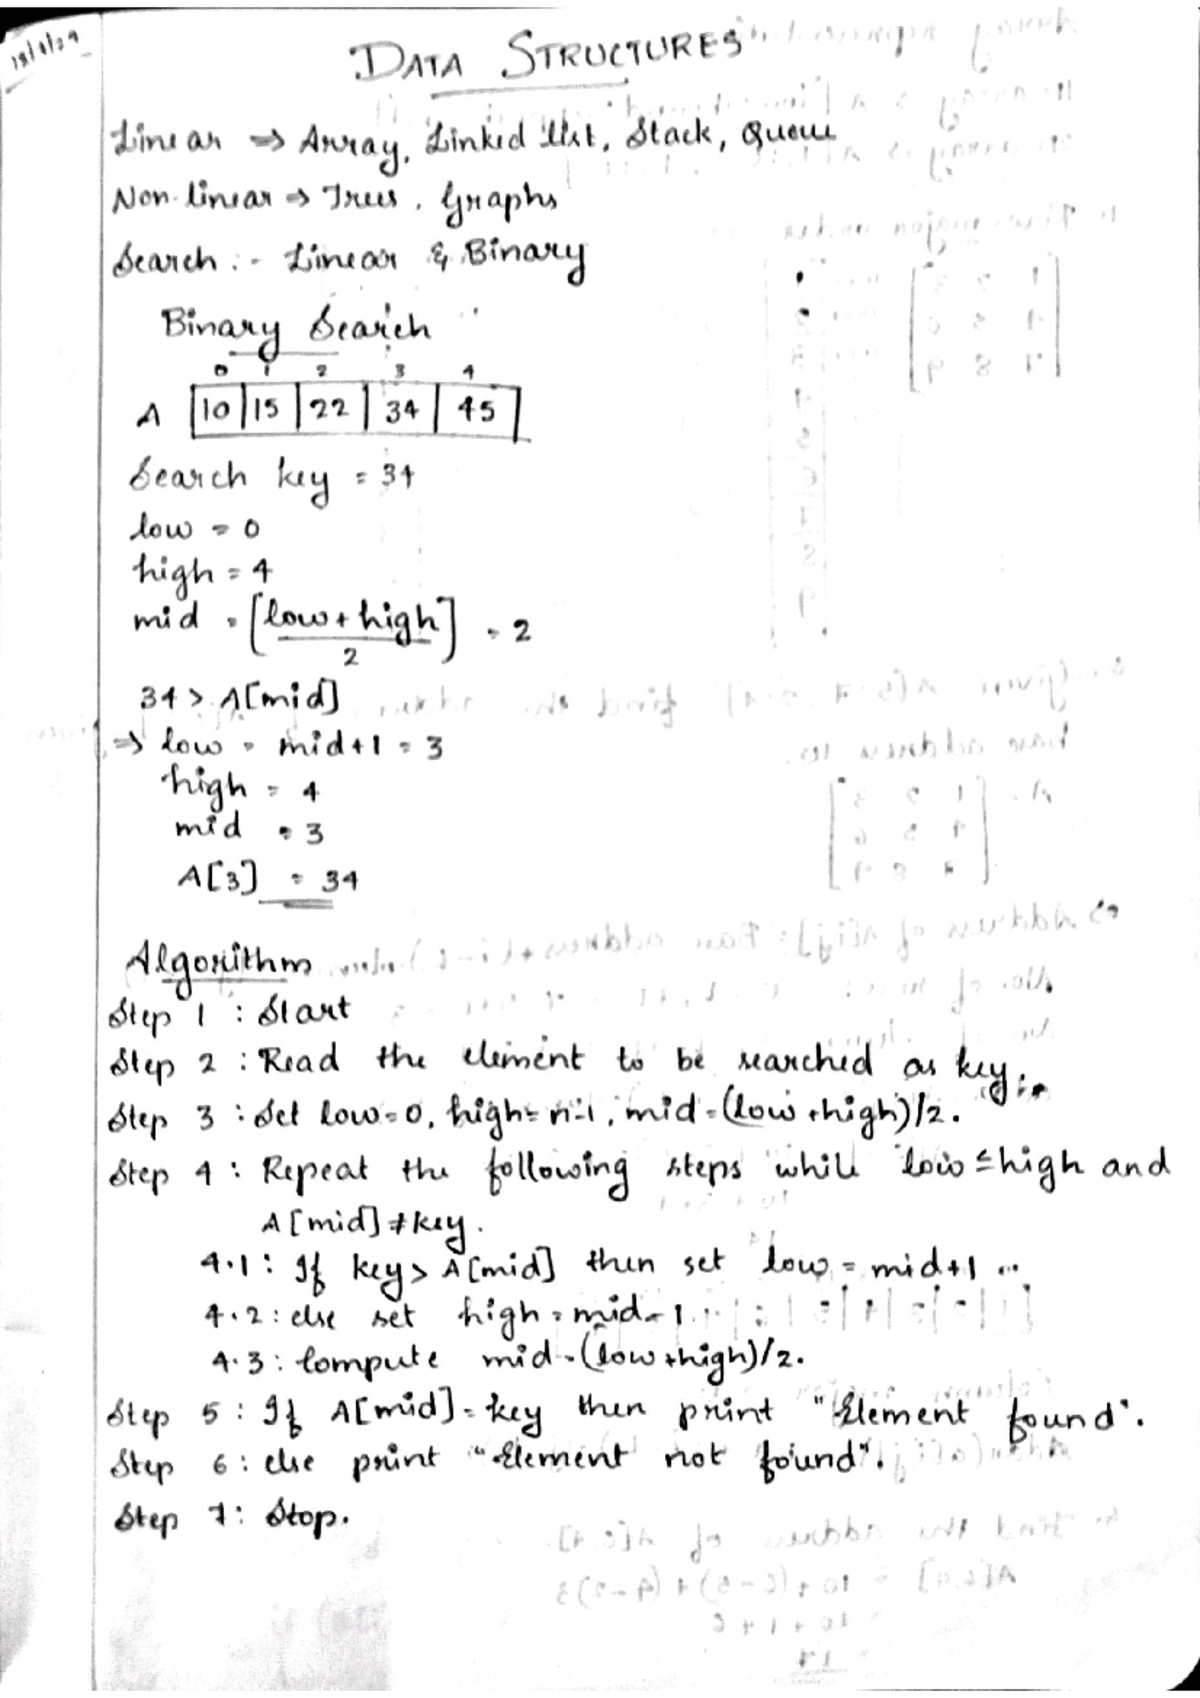 DATA STRUCTURES
Linear ⇒ Array, Linked list, Stack, Queue
Non-linear ⇒ Trees, Graphs
Search :- Linear & Binary
Binary Search
0 1 2 3 4
A 10 15 22 34 45
Search key = 34
low = 0
high = 4
mid = [low + high / 2] = 2
34 > A[mid]
⇒ low = mid+1 = 3
high = 4
mid = 3
A[3] = 34
Algorithm
Step 1 : Start
Step 2 : Read the element to be searched as key.
Step 3 : Set low=0, high=n-1, mid=(low+high)/2.
Step 4 : Repeat the following steps while low≤high and
A[mid]≠key.
4.1 : If key> A[mid] then set low = mid+1
4.2 : else set high = mid-1.
4.3 : Compute mid=(low+high)/2.
Step 5 : If A[mid]=key then print "Element found".
Step 6 : else print "Element not found".
Step 7 : Stop.